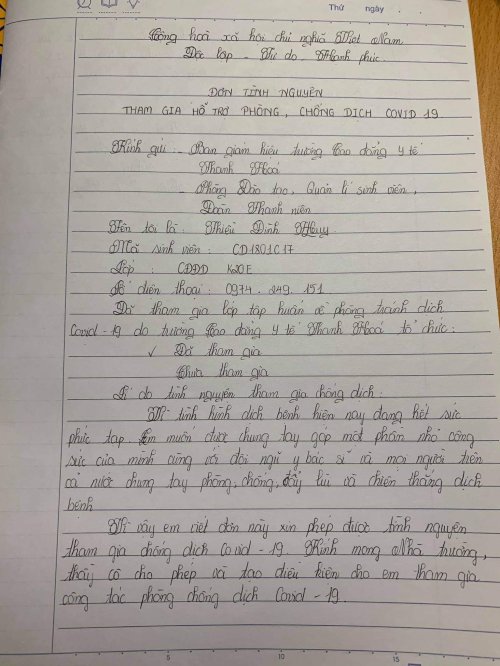 Thứ ngày
Cộng hoà xã hội chủ nghĩa Việt Nam
Độc lập - Tự do - Hạnh phúc.
ĐƠN TÌNH NGUYỆN
THAM GIA HỖ TRỢ PHÒNG, CHỐNG DỊCH COVID 19.
Kính gửi: - Ban giám hiệu trường Cao đẳng Y tế
Thanh Hoá
- Phòng Đào tạo, Quản lí sinh viên,
Đoàn Thanh niên
Tên tôi là: Thiều Đình Huy
Mã sinh viên: CD1801C17
Lớp : CĐĐD K20E
Số điện thoại: 0974. 249. 151
Đã tham gia lớp tập huấn về phòng tránh dịch
Covid-19 do trường Cao đẳng Y tế Thanh Hoá tổ chức:
✓ Đã tham gia
Chưa tham gia
Lí do tình nguyện tham gia chống dịch:
Vì tình hình dịch bệnh hiện nay đang hết sức
phức tạp. Em muốn được chung tay góp một phần nhỏ công
sức của mình cùng với đội ngũ y bác sĩ và mọi người trên
cả nước chung tay phòng, chống, đẩy lùi và chiến thắng dịch
bệnh
Vì vậy em viết đơn này xin phép được tình nguyện
tham gia chống dịch Covid-19. Kính mong Nhà trường,
thầy cô cho phép và tạo điều kiện cho em tham gia
công tác phòng chống dịch Covid-19.
5 10 15